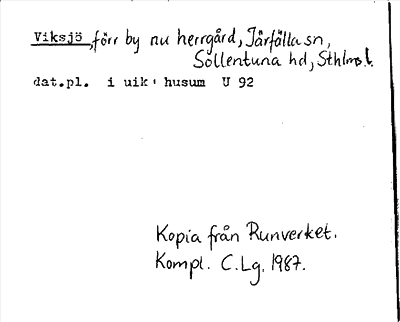 Viksjö, förr by nu herrgård, Järfälla sn,
Sollentuna hd, Sthlms l.
dat.pl. i uik ' husum U 92
Kopia från Runverket.
Kompl. C.Lg. 1987.